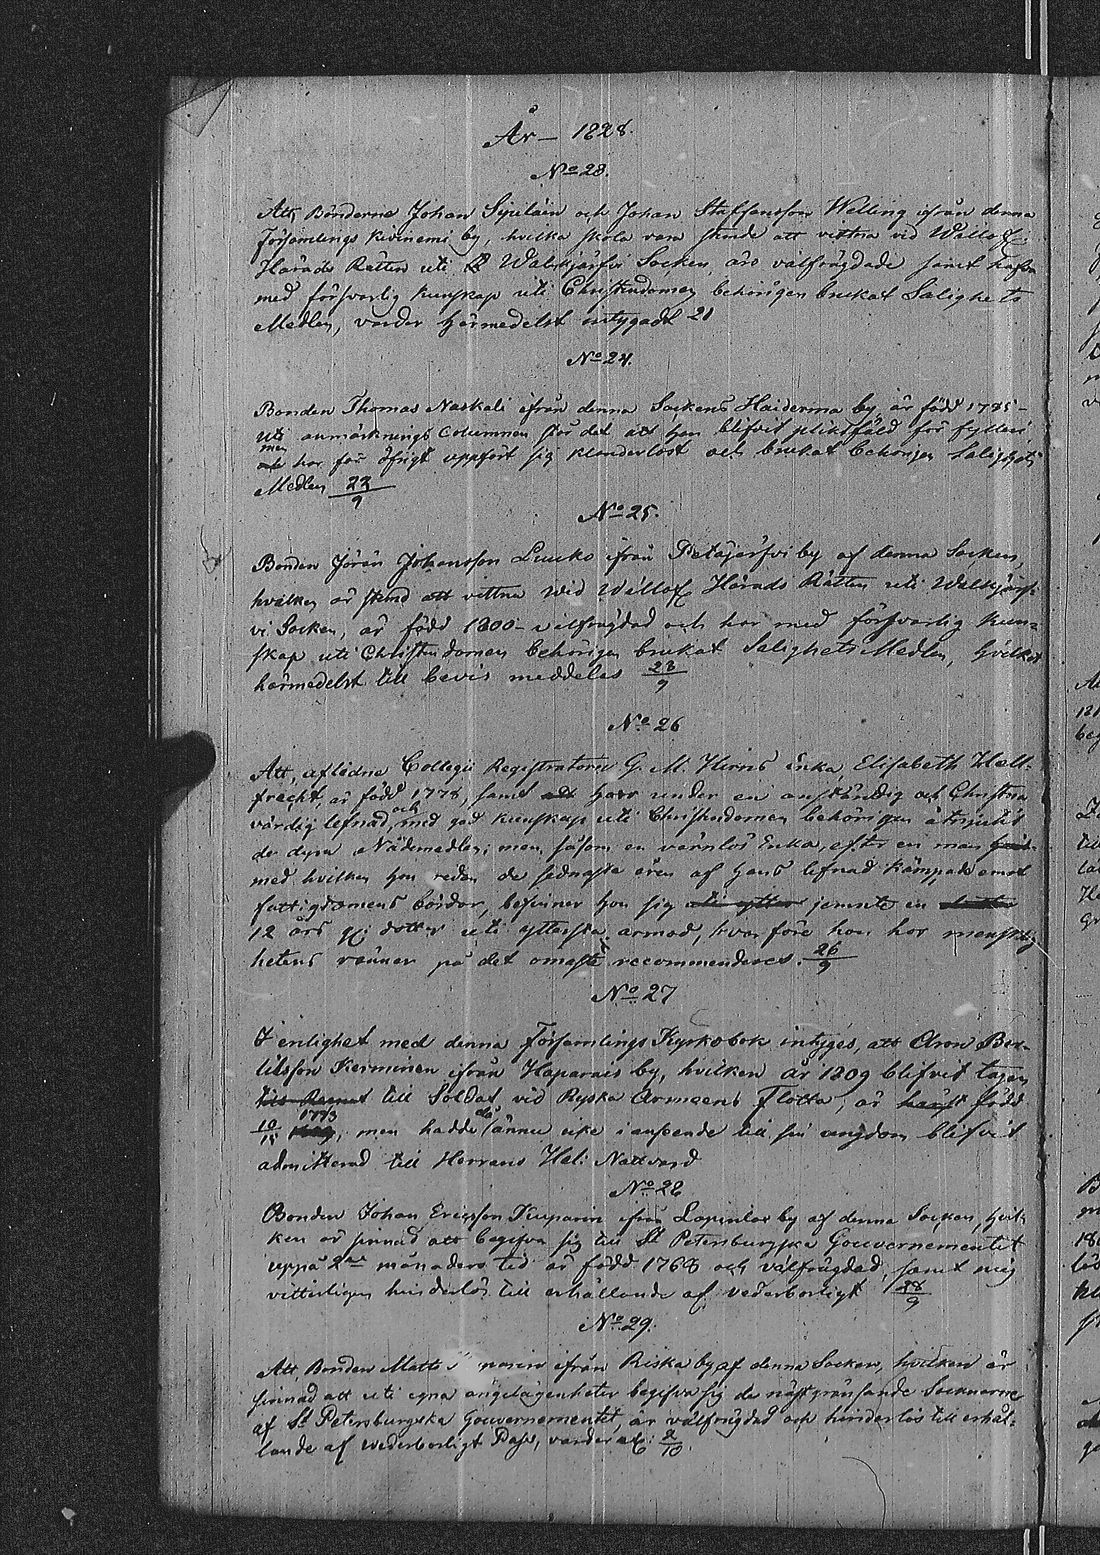 År 1828.
No 23.
Att, Bönderne Johan Sipiläin och Johan Staffansson Welling ifrån denna
församlings Kivinemi by, hvilka skola vara stämde att vittna vid
Härads Rätten uti Walkjärfvi Socken, äro välfrägdade samt hafva
med försvarlig kunskap uti Christendomen behörigen brukat Salighets
Medlen, varder härmedelst intygadt 21
No 24.
Bonden Thomas Naskali ifrån denna Sockens Haiderma by, är född 1785 -
uti anmärknings Columnen står det att han blifvit pliktfäld för fylleri,
men har för öfrigt uppfört sig klanderlöst och brukat behörigen Salighets
Medlen 22/9
No 25.
Bonden Jöran Johansson Luuko ifrån Petäjärfvi by af denna Socken,
hvilken är stämd att vittna wid Härads Rätten uti Walkjärf-
vi Socken, är född 1800 - välfrägdad och har med försvarlig kun-
skap uti Christendomen behörigen brukat Salighets Medlen, hvilket
härmedelst till bevis meddelas 23/9
No 26
Att, aflidne Collegii Registratorn G. M. Hirns Enka, Elisabeth Hall-
frecht, är född 1778, samt har under en anständig och Christen
värdig lefnad, och med god kunskap uti Christendomen behörigen åtnjutit
de dyra Nådemedlen; men, såsom en värnlös Enka, efter en man
med hvilken hon redan de sednaste åren af hans lefnad kämpade emot
fattigdomens bördor, befinner hon sig jemnte en
12 års dotter uti yttersta armod, hvarföre hon hos mensklig
hetens vänner på det ömaste recommenderes. 26/9
No 27
I enlighet med denna Församlings Kyrkobok intyges, att Aron Ber-
tilsson Kerminen ifrån Haparais by, hvilken år 1809 blifvit tagen
till Soldat vid Ryska Armeens Flotta, är född
10/15 1793, men hadde då ännu icke i anseende till sin ungdom blifvit
admitterad till Herrans Hel: Nattvard
No 28
Bonden Johan Ericsson Kuparin ifrån Lapinlax by af denna Socken, hvil-
ken är sinnad att begifva sig till St Petersburgska Gouvernementet
uppå 2ne månaders tid är född 1768 och välfrägdad, samt mig
vitterligen hinderlös till erhållande af vederborligt 28/9
No 29.
Att, Bonden Matts ifrån Riska by af denna Socken, hvilken är
sinnad att uti egna angelägenheter begifva sig de näst gränsande Socknarne
af St Petersburgska Gouvernementet är välfrägdad och hinderlös till erhål-
lande af wederborligt Pass, varder etc: 2/10.